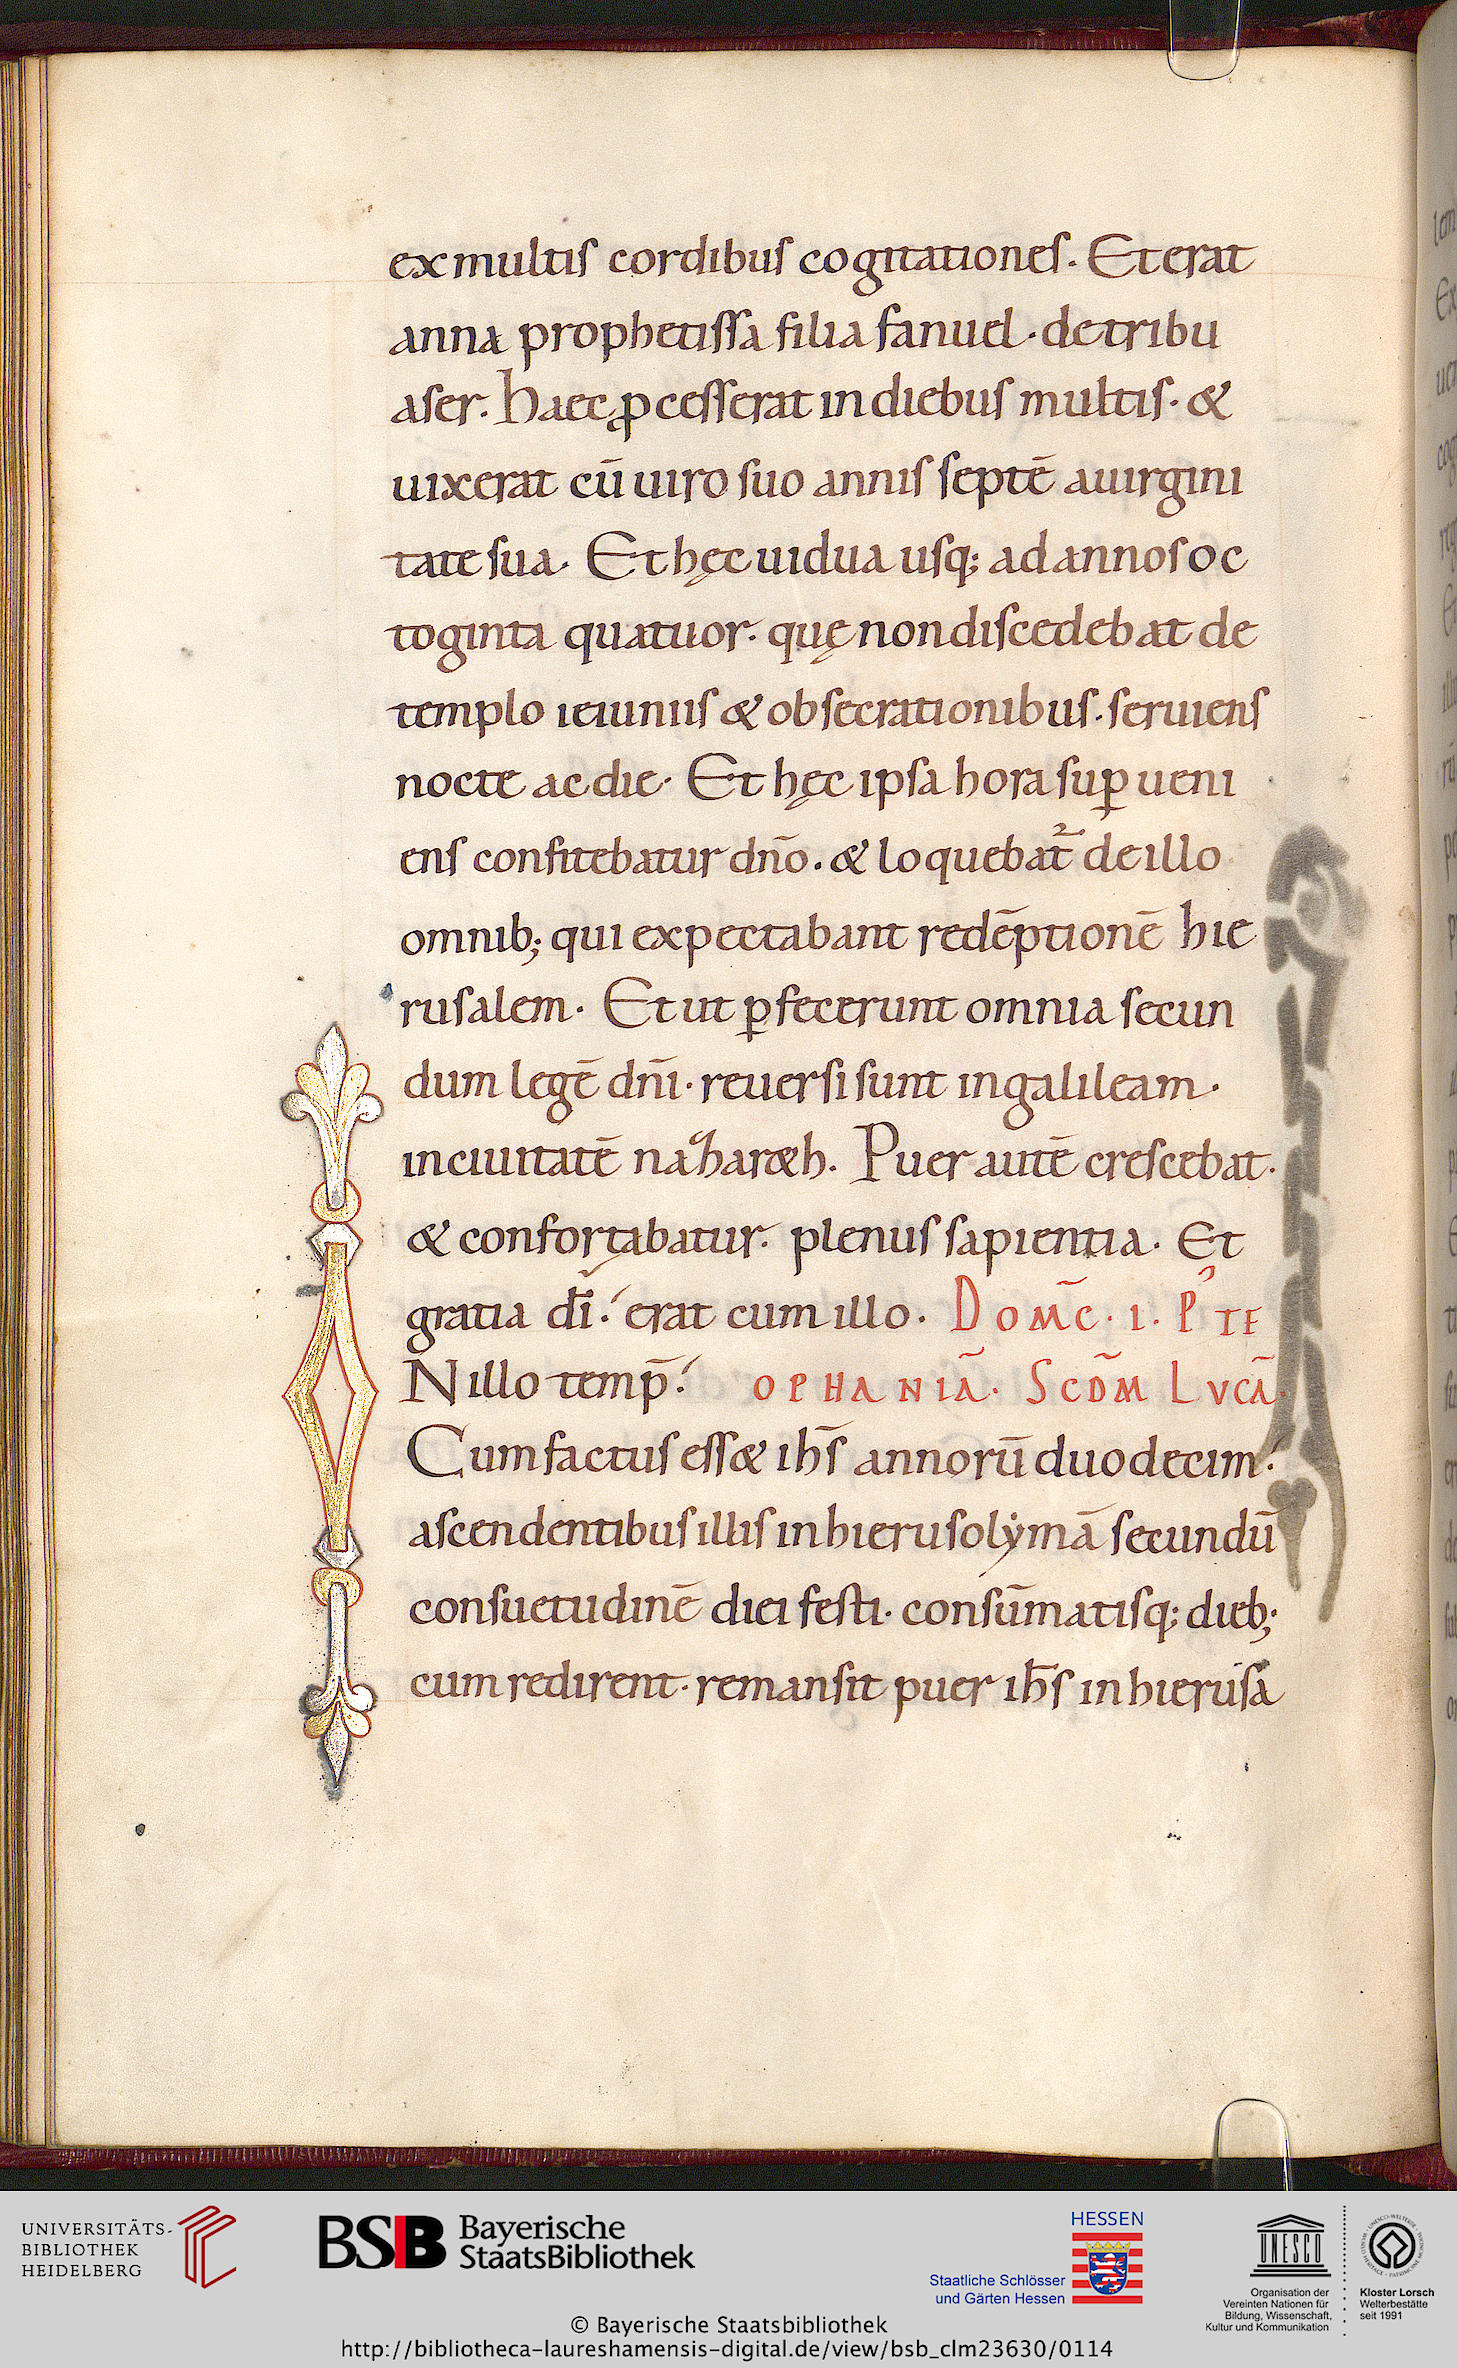 ex multis cordibus cogitationes. Et erat
anna prophetissa filia fanuel · de tribu
aser. Haec ꝓcesserat in diebus multis · &
uixerat cū uiro suo annis septē a uirgini
tate sua · Et hęc uidua usq; ad annos oc
toginta quatuor · quę non discedebat de
templo ieiuniis & obsecrationibus · seruiens
nocte ac die · Et hęc ipsa hora suꝑueni
ens confitebatur dn̄o . & loquebat᷑ de illo
omnib; qui expectabant redēptionē hie
rusalem · Et ut ꝑfecerunt omnia secun
dum legē dn̄i · reuersi sunt in galileam ·
in ciuitatē nazar&h. Puer autē crescebat ·
& confortabatur · plenus sapientia · Et
gratia dī erat cum illo · DOM̄C · I · P' TE
N illo temp̄. OPHANIĀ · SCD̄M LVCĀ ·
Cum factus ess& ih̄s annorū duodecim
ascendentibus illis in hierusolẏmā secundū
consuetudinē diei festi · consūmatisq; dieb;
cum redirent · remansit puer ih̄s in hierusa
UNIVERSITÄTS-
BIBLIOTHEK
HEIDELBERG
BSB Bayerische
StaatsBibliothek
HESSEN
Staatliche Schlösser
und Gärten Hessen
UNESCO
Organisation der
Vereinten Nationen für
Bildung, Wissenschaft,
Kultur und Kommunikation
Kloster Lorsch
Welterbestätte
seit 1991
© Bayerische Staatsbibliothek
http://bibliotheca-laureshamensis-digital.de/view/bsb_clm23630/0114